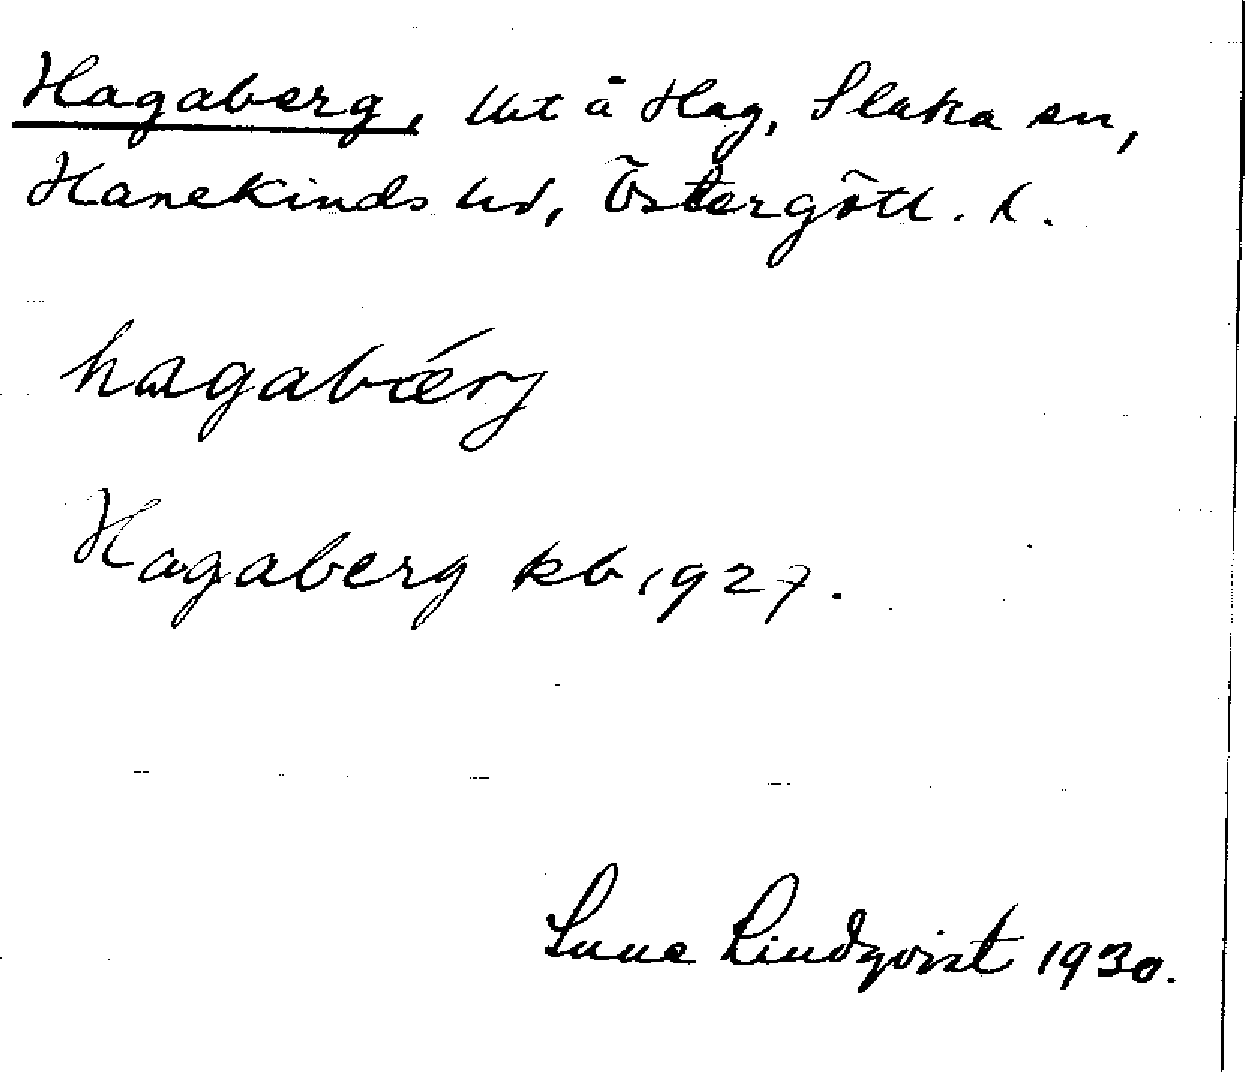 Hagaberg, lht å Hag, Slaka sn,
Hanekinds hd, Östergötl. l.
hagabærj
Hagaberg kb 1927.
Sune Lindqvist 1930.